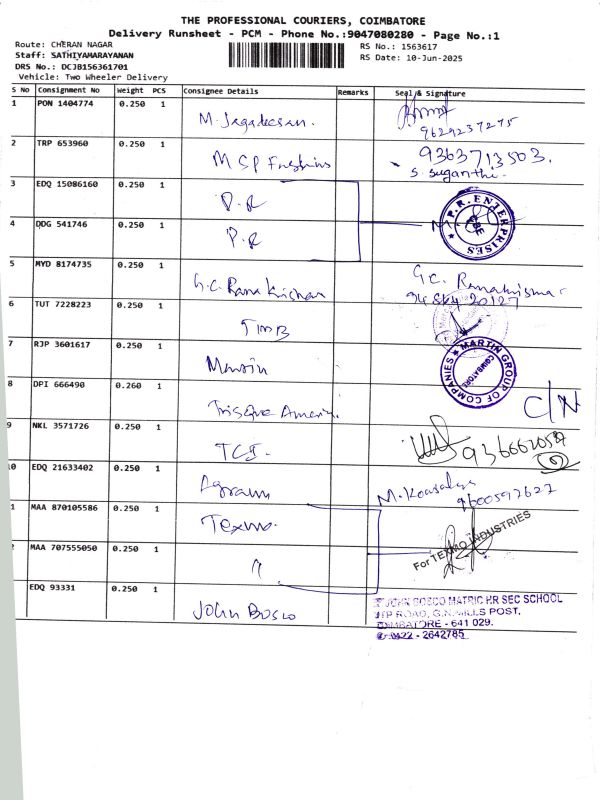 THE PROFESSIONAL COURIERS, COIMBATORE
Delivery Runsheet - PCM - Phone No.:9047080280 - Page No.:1
Route: CHERAN NAGAR
Staff: SATHIYANARAYANAN
DRS No.: DCJB156361701
Vehicle: Two Wheeler Delivery
RS No.: 1563617
RS Date: 10-Jun-2025
S No Consignment No Weight PCS Consignee Details Remarks Seal & Signature
1 PON 1404774 0.250 1
M. Jagadeesan.
9629237275
2 TRP 653960 0.250 1
M S P
9363713503.
S. Suganthi
3 EDQ 15086160 0.250 1
P.R
4 DDG 541746 0.250 1
P.R
P.R. ENTERPRISES
CBE
5 MYD 8174735 0.250 1
G.C. Ramakrishnan
G.C. Ramakrishnan
6 TUT 7228223 0.250 1
TMB
7 RJP 3601617 0.250 1
Martin
MARTIN GROUP OF COMPANIES
COIMBATORE
8 DPI 666490 0.260 1
C/N
9 NKL 3571726 0.250 1
TCI.
10 EDQ 21633402 0.250 1
M. Kousalya
9600597627
1 MAA 870105586 0.250 1
Texmo.
2 MAA 707555050 0.250 1
For TEXMO INDUSTRIES
EDQ 93331 0.250 1
John Bosco
JOHN BOSCO MATRIC HR SEC SCHOOL
ROAD, G.N.MILLS POST,
COIMBATORE - 641 029.
0422 - 2642785